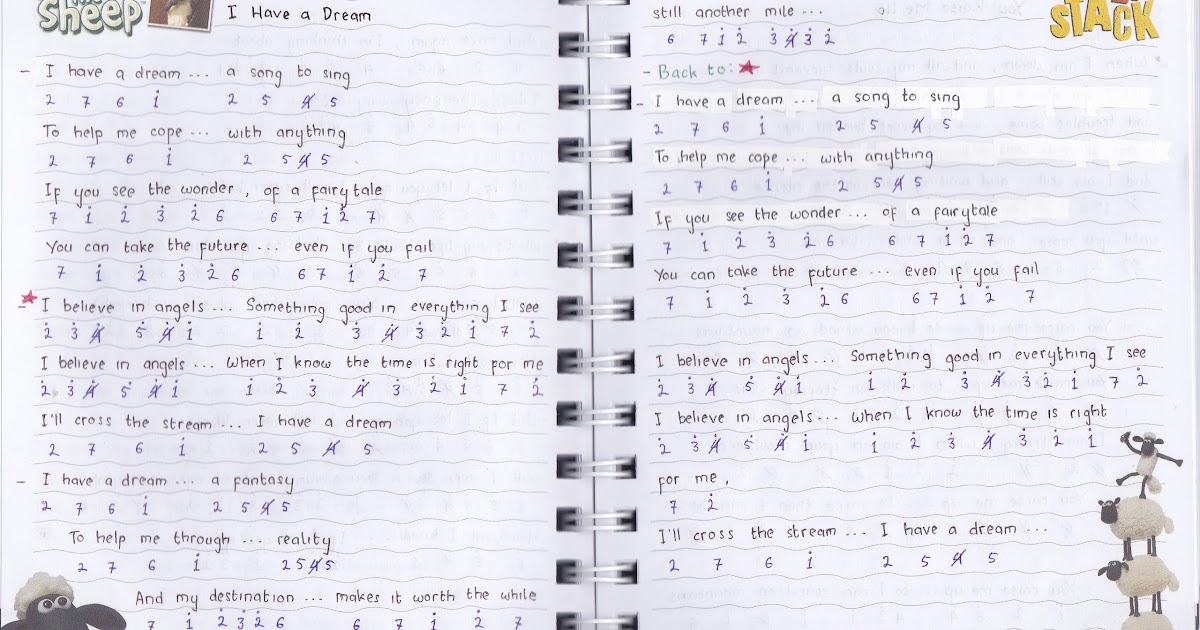 the Sheep
I Have a Dream
- I have a dream ... a song to sing
2 7 6 1̇ 2 5 4̸ 5
To help me cope ... with anything
2 7 6 1̇ 2 5 4̸ 5 .
If you see the wonder , of a fairytale
7 1̇ 2̇ 3̇ 2̇ 6 6 7 1̇ 2̇ 7
You can take the future ... even if you fail
7 1̇ 2̇ 3̇ 2̇ 6 6 7 1̇ 2̇ 7
-★ I believe in angels ... Something good in everything I see
2̇ 3̇ 4̸̇ 5̇ 4̸̇ 1̇ 1̇ 2̇ 3̇ 4̸̇ 3̇ 2̇ 1̇ 7 2̇
I believe in angels ... when I know the time is right for me
2̇ 3̇ 4̸̇ 5̇ 4̸̇ 1̇ 1̇ 2̇ 3̇ 4̸̇ 3̇ 2̇ 1̇ 7 2̇
I'll cross the stream ... I have a dream
2 7 6 1̇ 2 5 4̸ 5
- I have a dream ... a fantasy
2 7 6 1̇ 2 5 4̸ 5
To help me through ... reality
2 7 6 1̇ 2 5 4̸ 5
And my destination ... makes it worth the while
7 1̇ 2̇ 3̇ 2̇ 6 6 7 1̇ 2̇ 7
STACK
still another mile ...
6 7 1̇ 2̇ 3̇ 4̸̇ 3̇ 2̇
- Back to: ★
- I have a dream ... a song to sing
2 7 6 1̇ 2 5 4̸ 5
To help me cope ... with anything
2 7 6 1̇ 2 5 4̸ 5
If you see the wonder ... of a fairytale
7 1̇ 2̇ 3̇ 2̇ 6 6 7 1̇ 2̇ 7
You can take the future ... even if you fail
7 1̇ 2̇ 3̇ 2̇ 6 6 7 1̇ 2̇ 7
I believe in angels ... Something good in everything I see
2̇ 3̇ 4̸̇ 5̇ 4̸̇ 1̇ 1̇ 2̇ 3̇ 4̸̇ 3̇ 2̇ 1̇ 7 2̇
I believe in angels ... when I know the time is right
2̇ 3̇ 4̸̇ 5̇ 4̸̇ 1̇ 1̇ 2̇ 3̇ 4̸̇ 3̇ 2̇ 1̇
for me ,
7 2̇
I'll cross the stream ... I have a dream ...
2 7 6 1̇ 2 5 4̸ 5